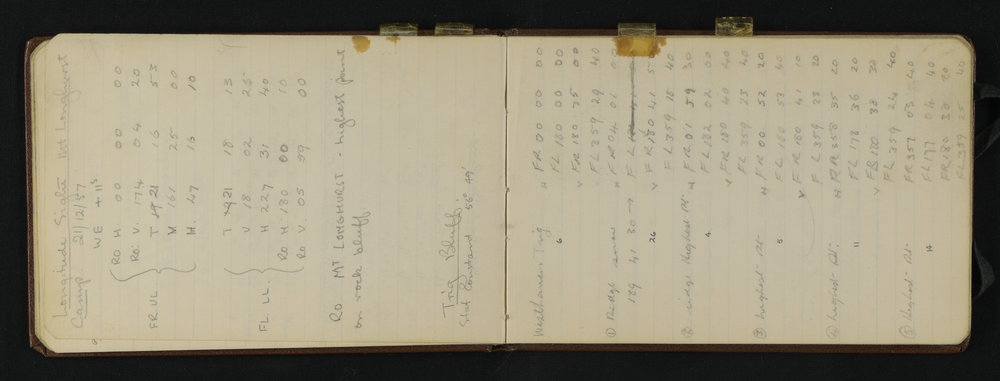 Longitude Sight Mt Longhurst
Camp. 21/12/57
WE + 11s
RO H 00 00 00
RO: V. 174 04 20
FR UL. T 21 16 53
V 161 25 00
H. 47 16 10
T 21 18 13
V 18 02 25
FL. LL. H 227 31 40
RO H 180 00 10
RO V. 05 59 00
RO MT LONGHURST - highest point
on rock bluff
Trig Bluff.
Stat Constand 56° 49'
Westhaven Trig H FR 00 00 00
6 FL 180 00 00
V FR 180 35 00
FL 359 29 40
① Ridge snow H FR 04 01
189 41 30 → FL
26 V FR 180 41 5
FL 359 18 40
② ridge highest Pt. H FR 01 59 30
4 FL 182 02 00
V FR 180 40 40
FL 359 23 40
③ highest Pt. H FR 00 52 20
5 FL 180 53 40
V FR 180 41 10
FL 359 23 20
④ highest Pt. H FR 358 35 20
11 FL 178 36 20
V FR 180 33 30
FL 359 24 40
⑤ Highest Pt. FR 357 03 40
14 FL 177 04 40
FR 180 32 20
FL 359 25 40